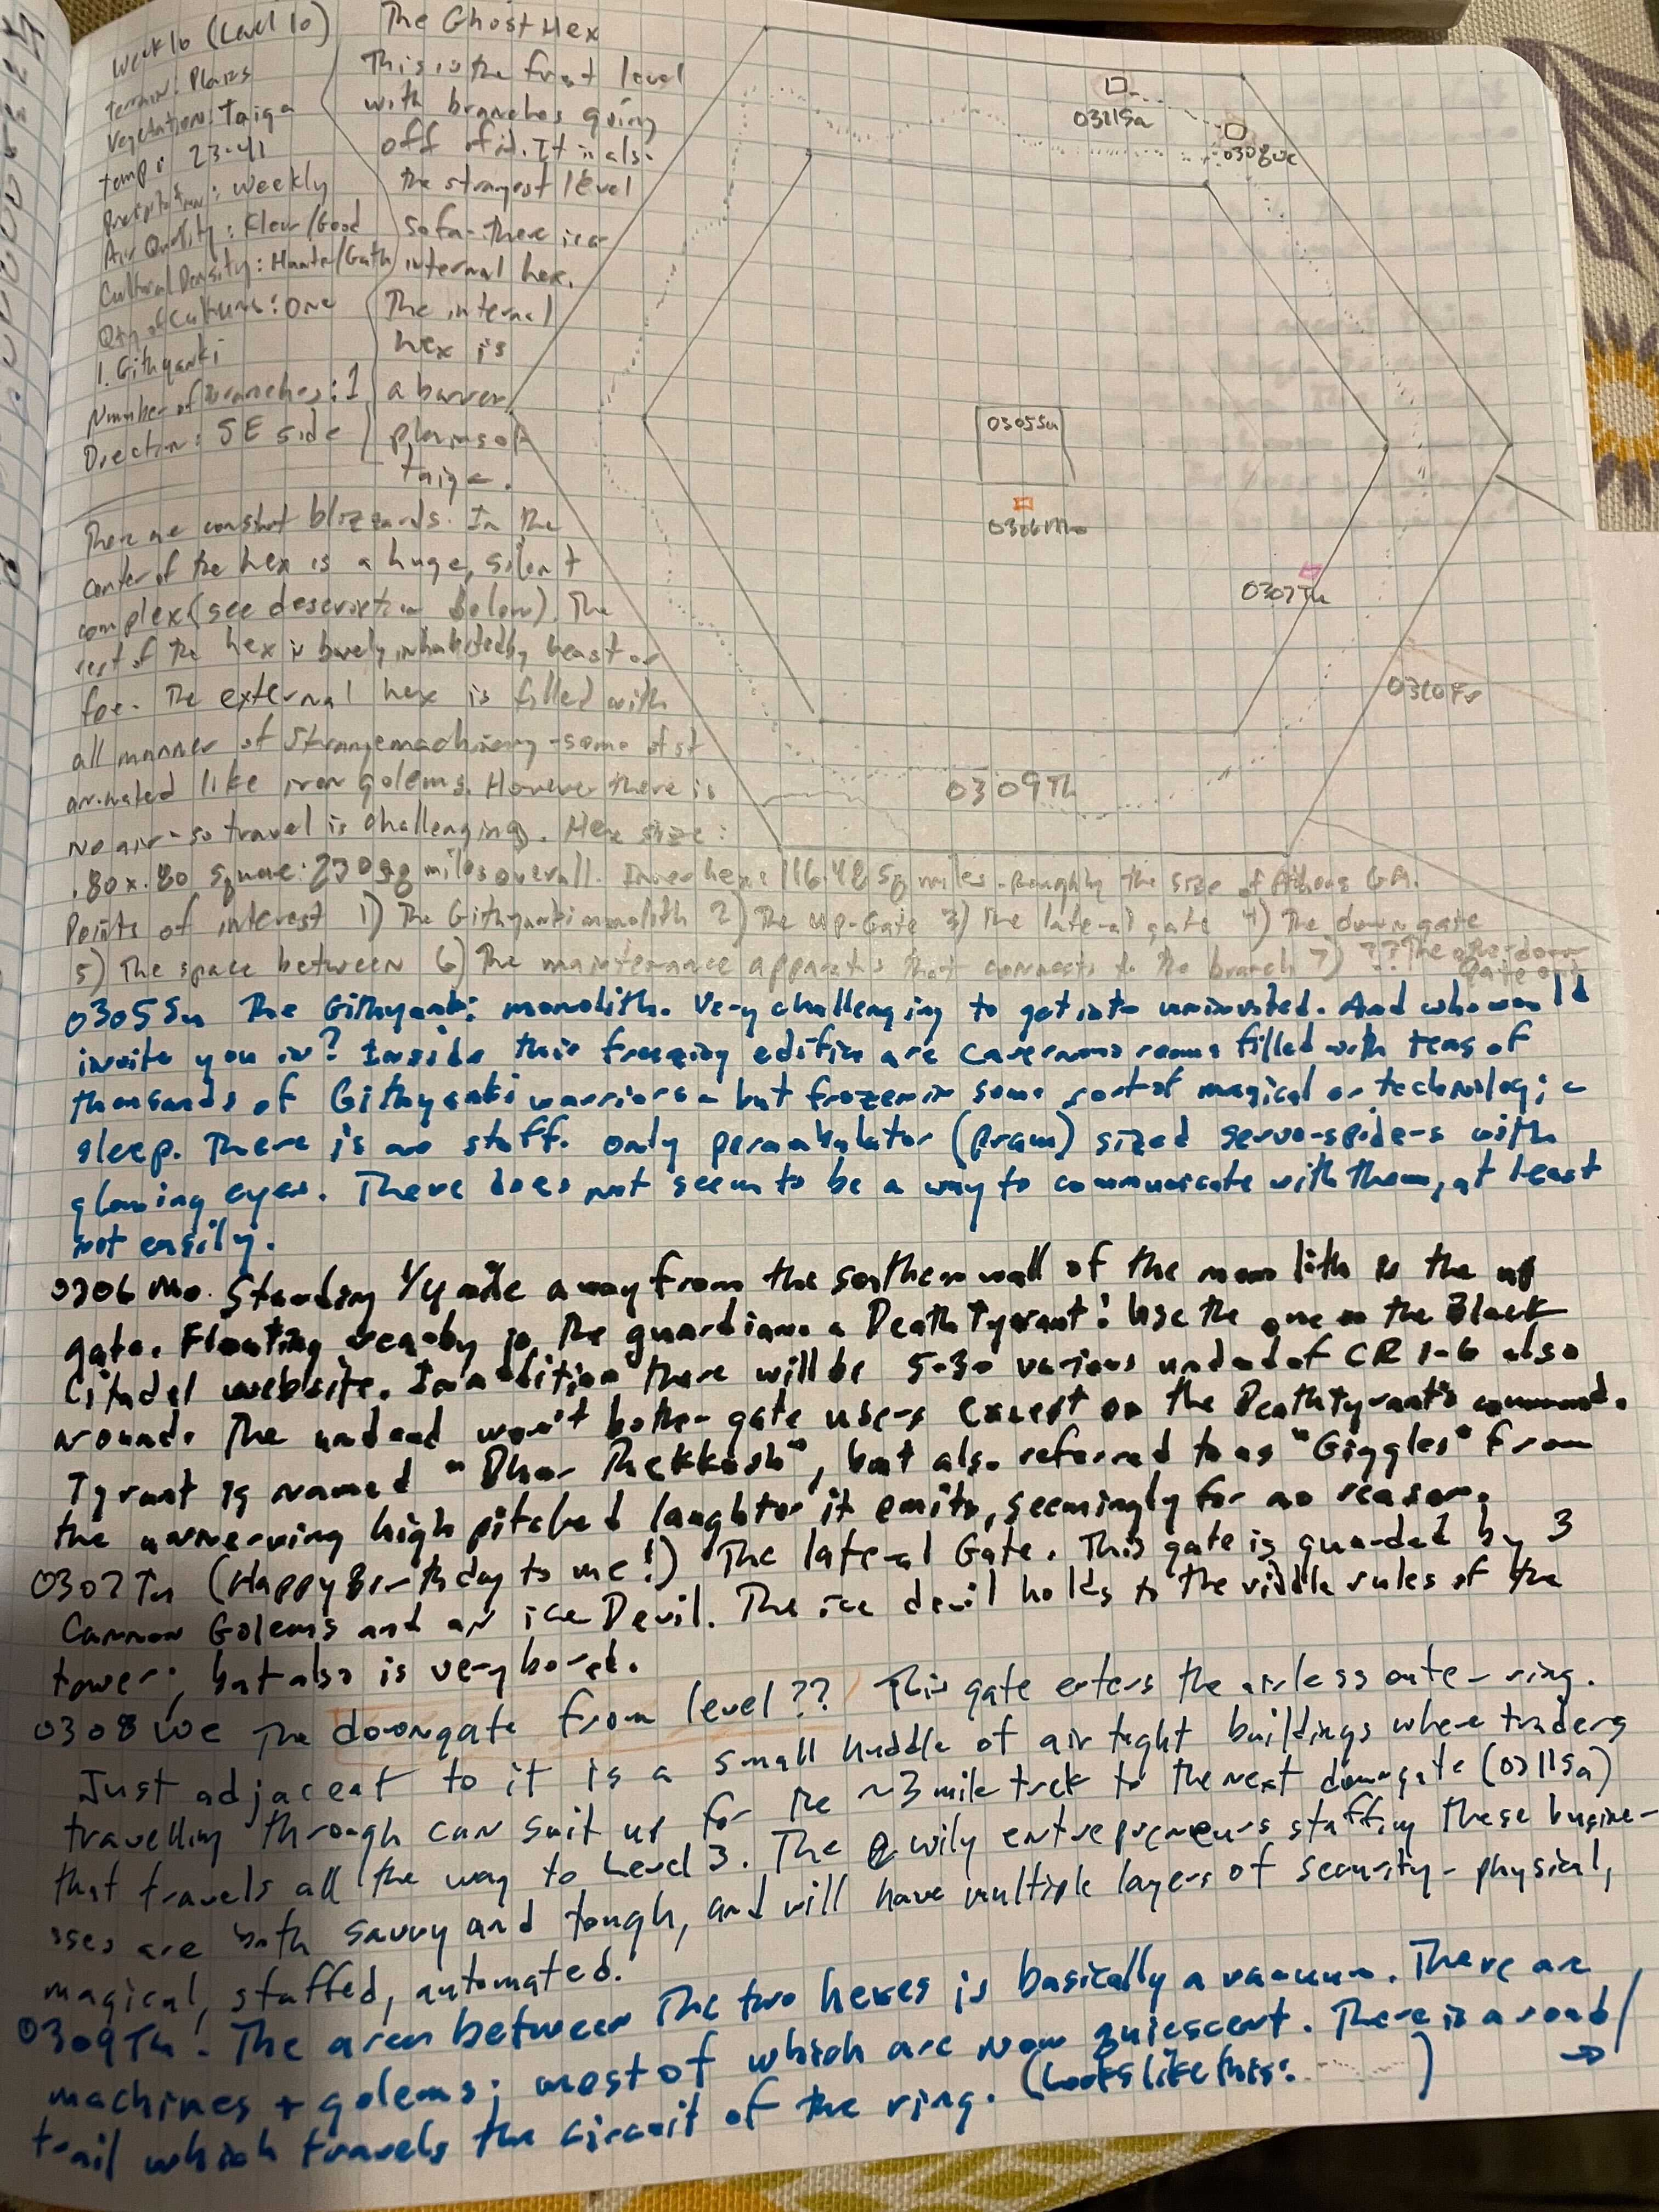 Week 10 (Level 10)
terrain: Plains
Vegetation: Taiga
temp: 23-41
Precipitation: weekly
Air Quality: Klear/Good
Cultural Density: Hunter/Gath
Qty of Cultures: One
1. Githyanki
Number of Branches: 1
Direction: SE side
The Ghost Hex
This is the first level
with branches going
off of it. It is also
the strangest level
so far - there is a
internal hex.
The internal
hex is
a barren
plains of
taiga.
There are constant blizzards. In the
center of the hex is a huge, silent
complex (see description below). The
rest of the hex is barely inhabited by beast or
foe. The external hex is filled with
all manner of strange machinery - some of it
animated like iron golems. However there is
no air - so travel is challenging. Hex size:
.80x.80 square: 230 sq miles overall. Inner hex: 116.48 sq miles - roughly the size of Athens GA.
Points of interest 1) The Githyanki monolith 2) The up-Gate 3) The lateral gate 4) The down gate
5) The space between 6) The maintenance apparatus that connects to the branch 7) ?? The other down
gate
0311Sa
0308We
0305Su
0306Mo
0307Tu
0310Fr
0309Th
0305Su The Githyanki monolith. Very challenging to get into uninvited. And who would
invite you in? Inside this freezing edifice are cavernous rooms filled with tens of
thousands of Githyanki warriors - but frozen in some sort of magical or technologic
sleep. There is no staff. only perambulator (pram) sized servo-spiders with
glowing eyes. There does not seem to be a way to communicate with them, at least
not easily.
0306 Mo. Standing 1/4 mile away from the southern wall of the monolith is the up
gate. Floating nearby is the guardian: a Death Tyrant! Use the one on the Black
Citadel website. In addition there will be 5-30 various undead of CR 1-6 also
around. The undead won't bother gate users except on the Death tyrant's command.
Tyrant is named "Dhar Thekkosh", but also referred to as "Giggles" from
the unnerving high pitched laughter it emits, seemingly for no reason.
0307 Tu (Happy Birthday to me!) The lateral Gate. This gate is guarded by 3
Cannon Golems and an ice Devil. The ice devil holds to the riddle rules of the
tower; but also is very bored.
0308 We The downgate from level ?? This gate enters the airless outer ring.
Just adjacent to it is a small huddle of air tight buildings where traders
travelling through can suit up for the ~3 mile trek to the next downgate (0311Sa)
that travels all the way to Level 3. The wily entrepreneurs staffing these busine-
sses are both savvy and tough, and will have multiple layers of security - physical,
magical, staffed, automated.
0309Th: The area between the two hexes is basically a vacuum. There are
machines + golems; most of which are now quiescent. There is a road/
trail which travels the circuit of the ring. (Looks like this: ........) →